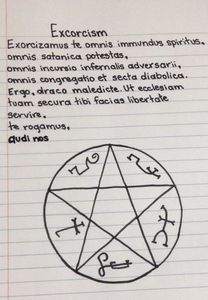 Excorcism
Exorcizamus te omnis immundus spiritus,
omnis satanica potestas,
omnis incursio infernalis adversarii,
omnis congregatio et secta diabolica.
Ergo, draco maledicte. Ut ecclesiam
tuam secura tibi facias libertate
servire,
te rogamus,
audi nos